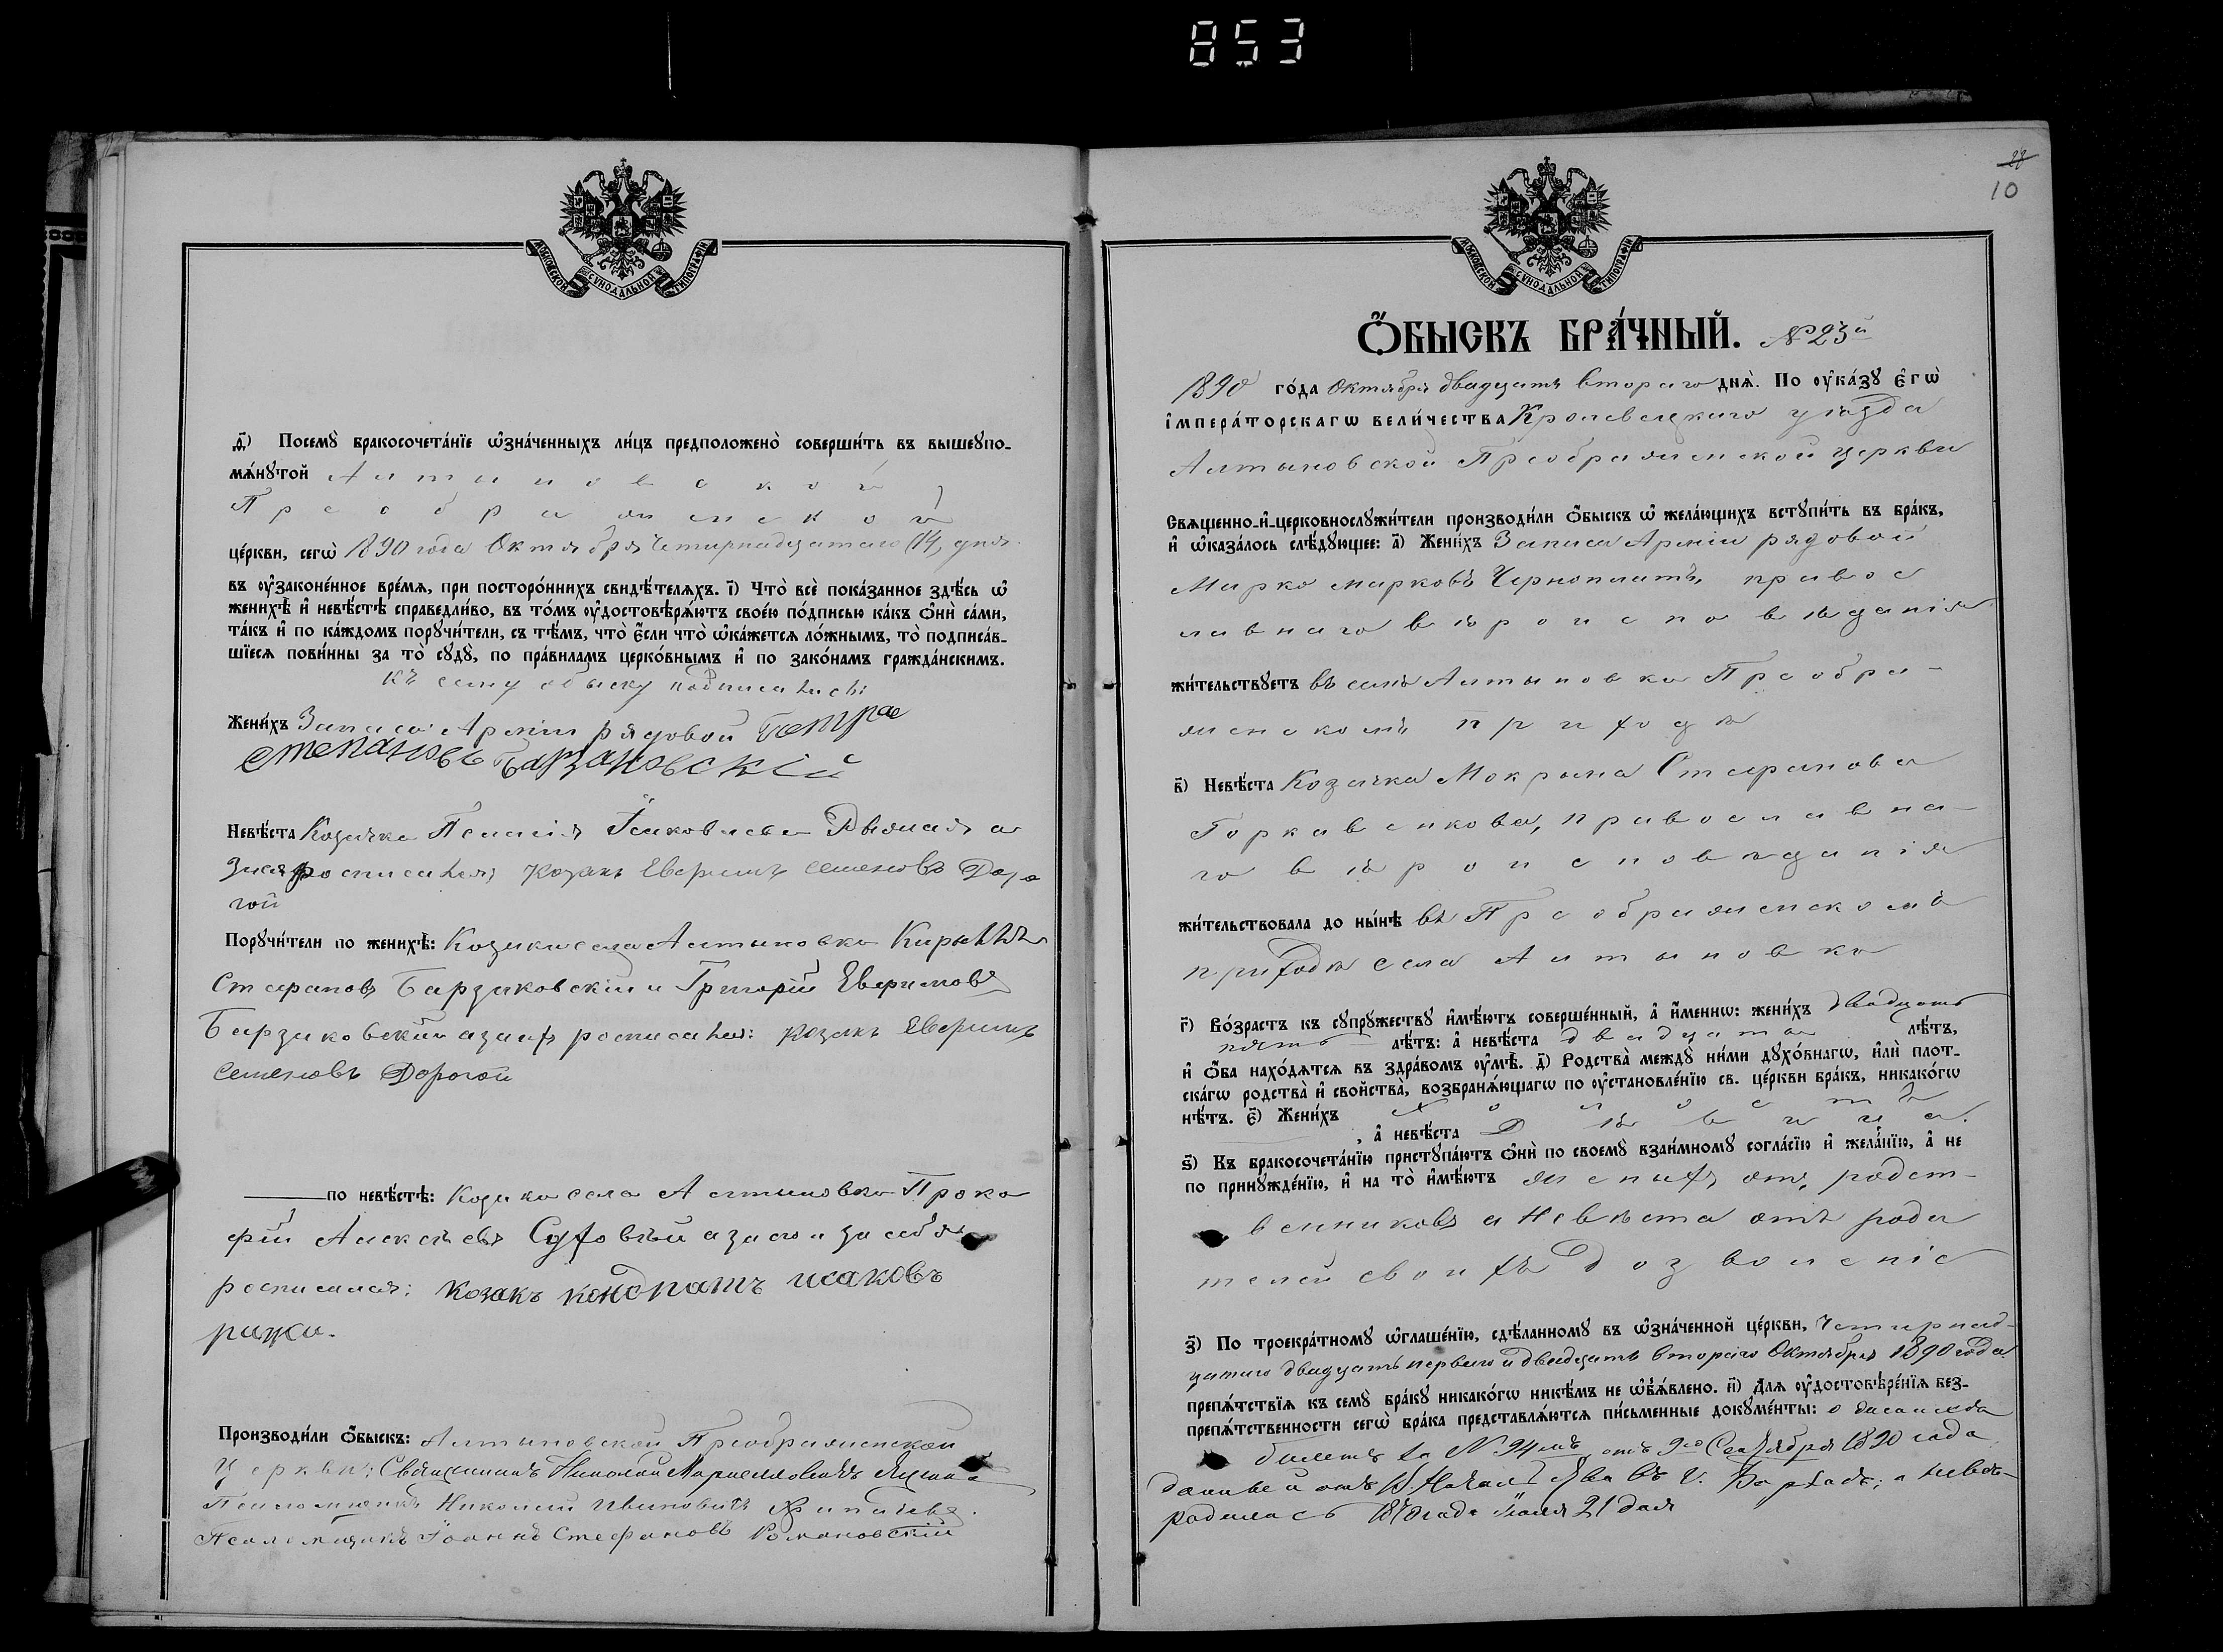 853
МОСКОВСКОЙ СУНОДАЛЬНОЙ ТИПОГРАФІИ
д҃і) Посемꙋ̀ бракосочета́нїе ѡ҆зна́ченныхъ ли́цъ предположено̀ соверши́ть въ вышеꙋпо-
мѧ́нꙋтой Алтыновской
Преображенской
це́ркви, сегѡ̀ 1890 года Октября четырнадцатаго (14) дня
въ ᲂу҆законе́нное вре́мѧ, при посторо́ннихъ свидѣ́телѧхъ. і҃) Что̀ всѐ пока́занное здѣ́сь ѡ҆
женихѣ̀ и҆ невѣ́стѣ справедли́во, въ то́мъ ᲂу҆достовѣрѧ́ютъ свое́ю по́дписью ка́къ ѻ҆нѝ са́ми,
та́къ и҆ по ка́ждомъ порꙋчи́тели, съ тѣ́мъ, что̀ є҆́сли что̀ ѡ҆ка́жетсѧ ло́жнымъ, то̀ подписа́в-
шїесѧ пови́нны за то̀ сꙋдꙋ̀, по пра́виламъ церко́внымъ и҆ по зако́намъ гражда́нскимъ.
къ сему обыску подписались:
Жени́хъ Запаса Арміи рядовой Петро
степановъ Барзаковскій
Невѣ́ста Козачка Пелагія Исаковлева Рыжая а
за нея росписался козакъ Евфимъ Семеновъ Доро
гой
Порꙋчи́тели по женихѣ̀: Козаки села Алтыновки Кирыллъ
Стефановъ Барзаковскій и Григорій Евфимовъ
Барзаковскій а за нихъ росписался: козакъ Евфимъ
Семеновъ Дорогой
по невѣ́стѣ: Козаки села Алтыновки Проко
фій Алексѣевъ Суховѣй а за него и за себя
росписался: козакъ кондратъ исаковъ
рижи.
Производи́ли ѻ҆́быскъ: Алтыновской Преображенской
Церкви: Священникъ Николай
Псаломщикъ Николай Ивановичъ
Псаломщикъ Іоаннъ Стефановъ Романовскій
28
10
МОСКОВСКОЙ СУНОДАЛЬНОЙ ТИПОГРАФІИ
Ѻ҆́БЫСКЪ БРА́ЧНЫЙ. №23й
1890 го́да Октября двадцать втораго днѧ̀. По ᲂу҆ка́зꙋ є҆гѡ̀
і҆мпера́торскагѡ вели́чества Кролевецкаго уѣзда
Алтыновской Преображенской церкви
Свѧщенно-и҆-церковнослꙋжи́тели производи́ли ѻ҆́быскъ ѡ҆ жела́ющихъ встꙋпи́ть въ бра́къ,
и҆ ѡ҆каза́лось слѣ́дꙋющее: а҃) Жени́хъ Запаса Арміи рядовой
Марко Марковъ Черноплатъ, правос
лавнаго вѣроисповѣданія
жи́тельствꙋетъ въ селѣ Алтыновкѣ Преобра-
женскомъ приходѣ
в҃) Невѣ́ста Козачка Мокрына Стефанова
Горкавенкова, православна-
го вѣроисповѣданія
жи́тельствовала до ны́нѣ въ Преображенскомъ
приходѣ села Алтыновки
г҃) Во́зрастъ къ сꙋпрꙋ́жествꙋ и҆мѣ́ютъ соверше́нный, а҆ и҆́меннѡ: жени́хъ двадцать
пять лѣ́тъ: а҆ невѣ́ста двадцать лѣ́тъ,
и҆ ѻ҆́ба нахо́дѧтсѧ въ здра́вомъ ᲂу҆мѣ̀. д҃) Родства̀ междꙋ̀ ни́ми дꙋхо́внагѡ, и҆лѝ плот-
ска́гѡ родства̀ и҆ свойства̀, возбранѧ́ющагѡ по ᲂу҆становле́нїю св. це́ркви бра́къ, никако́гѡ
нѣ́тъ. є҃) Жени́хъ холостъ
, а҆ невѣ́ста дѣвица.
ѕ҃) Къ бракосочета́нїю пристꙋпа́ютъ ѻ҆нѝ по своемꙋ̀ взаи́мномꙋ согла́сїю и҆ жела́нїю, а҆ не
по принꙋжде́нїю, и҆ на то̀ и҆мѣ́ютъ женихъ отъ родст-
венниковъ а невѣста отъ роди
телей своихъ дозволеніе
з҃) По троекра́тномꙋ ѡ҆глаше́нїю, сдѣ́ланномꙋ въ ѡ҆зна́ченной це́ркви, четырнад-
цатаго двадцать перваго и двадцать втораго Октября 1890 года
препѧ́тствїѧ къ семꙋ̀ бра́кꙋ никако́гѡ никѣ́мъ не ѡ҆б̾ѧ́влено. и҃) Длѧ ᲂу҆достовѣре́нїѧ без-
препѧ́тственности сегѡ̀ бра́ка представлѧ́ютсѧ пи́сьменные докꙋме́нты:
билетъ за №94мъ отъ 9го 1890 года
данный отъ въ г. а невѣ-
родилась 1870 года Іюля 21 дня